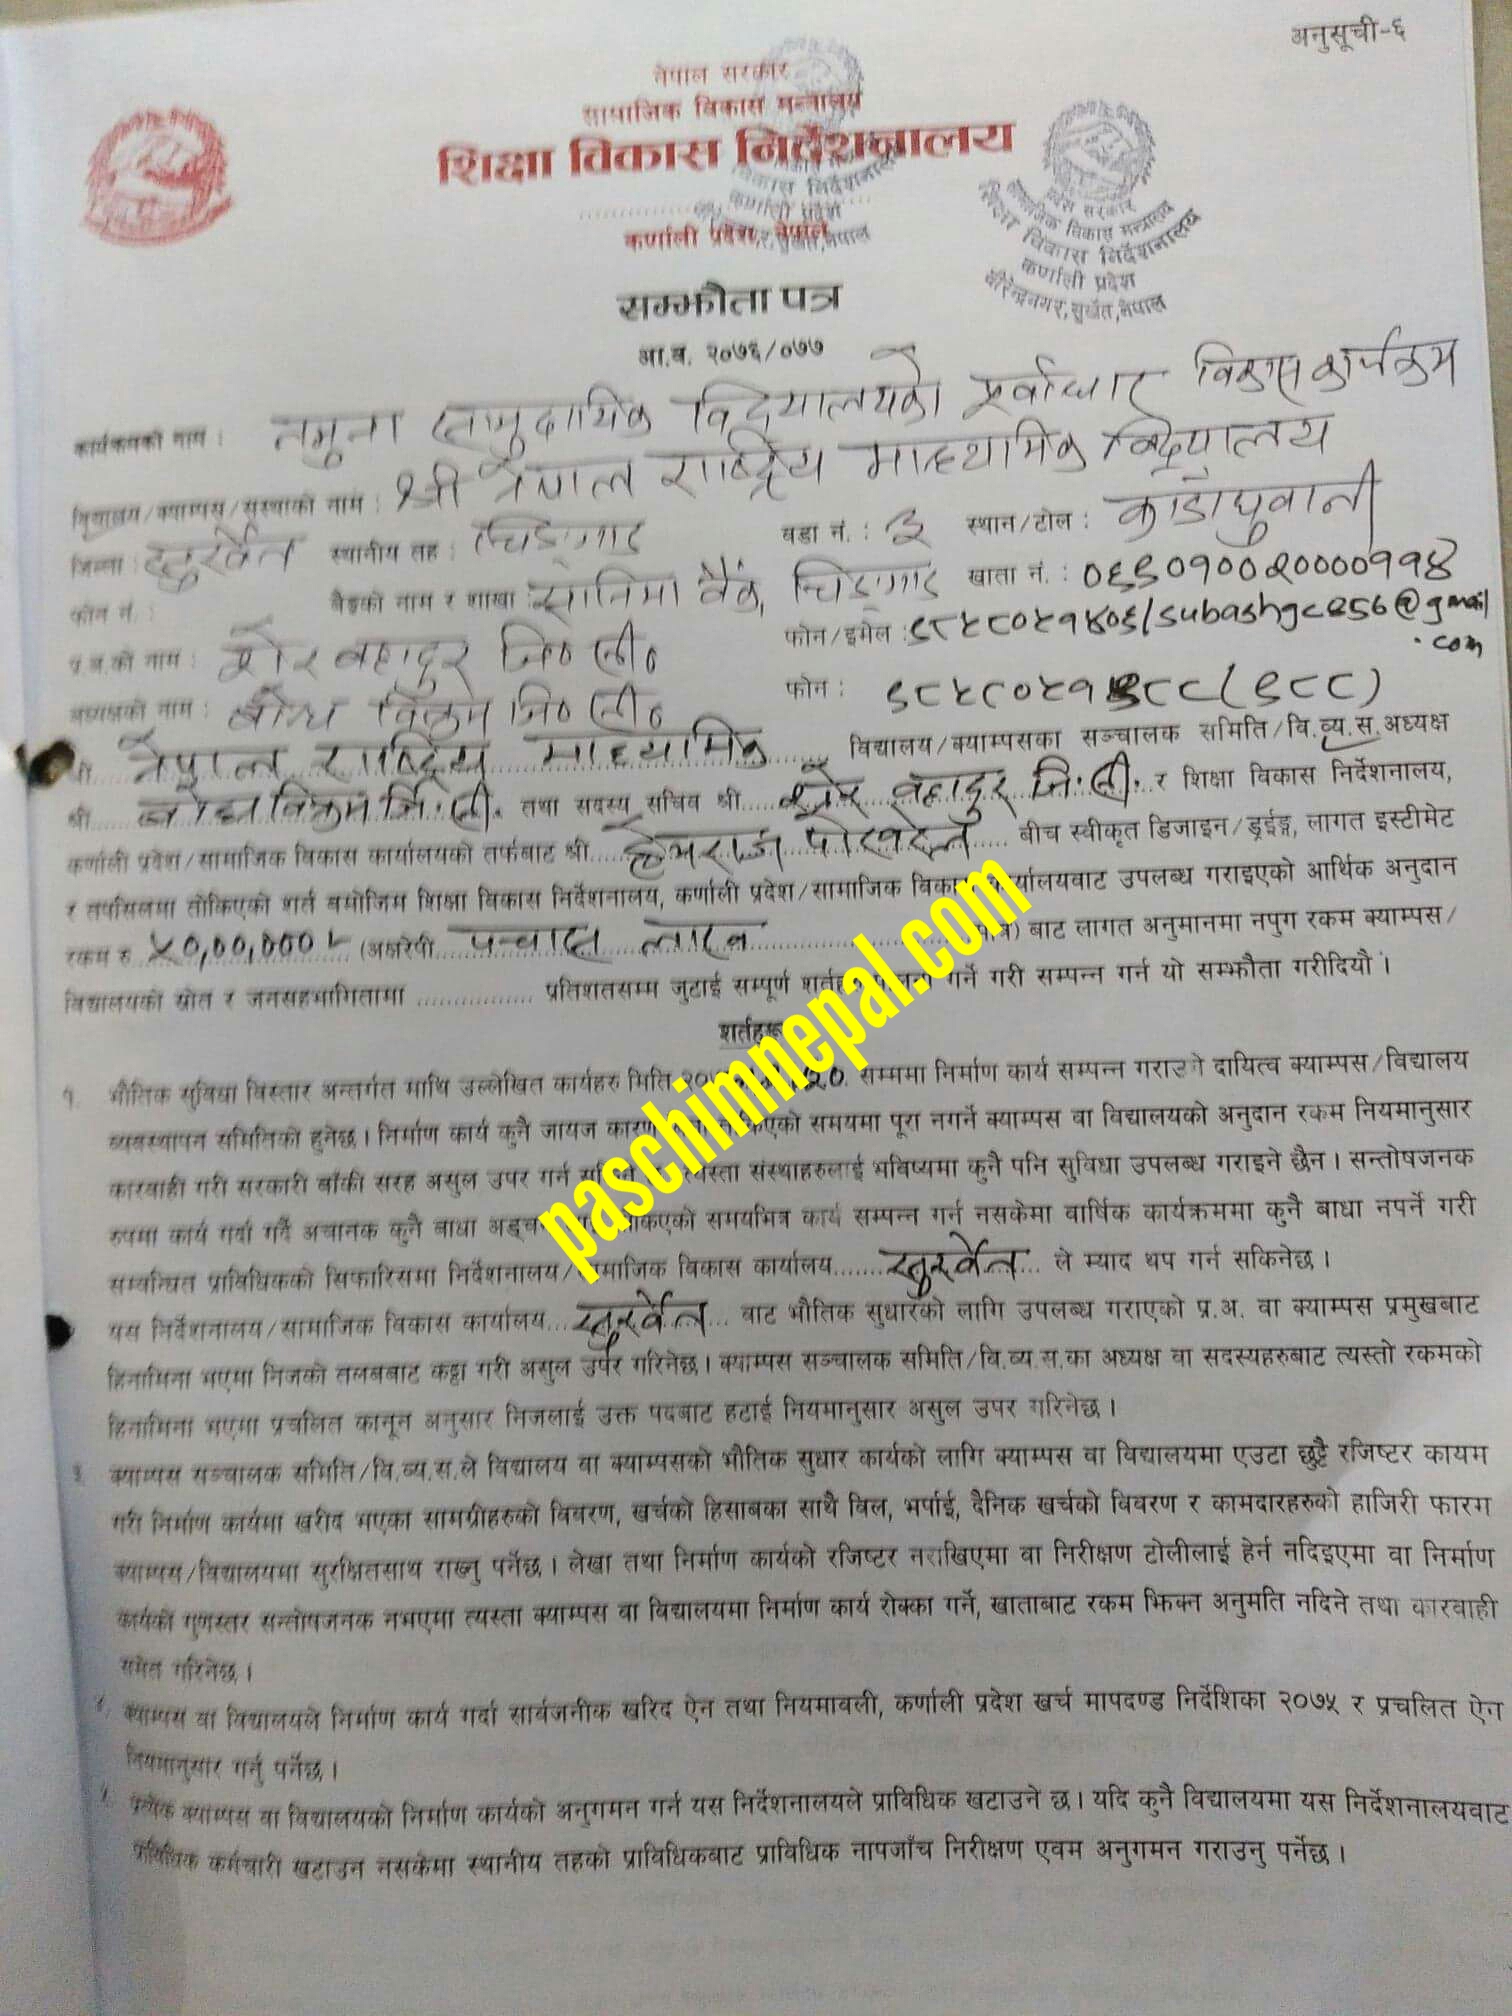 अनुसूची-६
नेपाल सरकार
सामाजिक विकास मन्त्रालय
शिक्षा विकास निर्देशनालय
कर्णाली प्रदेश, नेपाल
प्रदेश सरकार
सामाजिक विकास मन्त्रालय
शिक्षा विकास निर्देशनालय
कर्णाली प्रदेश
वीरेन्द्रनगर, सुर्खेत, नेपाल
सम्झौता पत्र
आ.व. २०७६/०७७
कार्यक्रमको नाम : नमुना सामुदायिक विद्यालयको पूर्वाधार विकास कार्यक्रम
विद्यालय/क्याम्पस/संस्थाको नाम : श्री नेपाल राष्ट्रिय माध्यामिक विद्यालय
जिल्ला: सुर्खेत स्थानीय तह : चिङ्गाड वडा नं. : ३ स्थान/टोल : काडाघुवानी
फोन नं. : बैङको नाम र शाखा: सानिमा बैंक, चिङ्गाड खाता नं. : ०६९०१००२००००११४
प्र.अ.को नाम : शेर बहादुर जि० सी० फोन/इमेल : ९८५८०५१४०६/subashgc256@gmail.com
अध्यक्षको नाम : विक्रम जि० सी० फोन : (९८८)
श्री नेपाल राष्ट्रिय माध्यामिक विद्यालय/क्याम्पसका सञ्चालक समिति/वि.व्य.स.अध्यक्ष
श्री विक्रम जि.सी. तथा सदस्य सचिव श्री शेर बहादुर जि.सी. र शिक्षा विकास निर्देशनालय,
कर्णाली प्रदेश/सामाजिक विकास कार्यालयको तर्फबाट श्री हेमराज पोखरेल बीच स्वीकृत डिजाइन/ड्रईङ्ग, लागत इस्टीमेट
र तपसिलमा तोकिएको शर्त बमोजिम शिक्षा विकास निर्देशनालय, कर्णाली प्रदेश/सामाजिक विकास कार्यालयबाट उपलब्ध गराइएको आर्थिक अनुदान
रकम रु ५०,००,०००।- (अक्षरेपी पन्चास लाख मात्र) बाट लागत अनुमानमा नपुग रकम क्याम्पस/
विद्यालयको स्रोत र जनसहभागितामा ................ प्रतिशतसम्म जुटाई सम्पूर्ण शर्तहरु पालना गर्ने गरी सम्पन्न गर्न यो सम्झौता गरीदियौ ।
शर्तहरु
१. भौतिक सुविधा विस्तार अन्तर्गत माथि उल्लेखित कार्यहरु मिति सम्ममा निर्माण कार्य सम्पन्न गराउने दायित्व क्याम्पस/विद्यालय
व्यवस्थापन समितिको हुनेछ । निर्माण कार्य कुनै जायज कारण तोकिएको समयमा पूरा नगर्ने क्याम्पस वा विद्यालयको अनुदान रकम नियमानुसार
कारवाही गरी सरकारी बाँकी सरह असुल उपर गर्न सकिने त्यस्ता संस्थाहरुलाई भविष्यमा कुनै पनि सुविधा उपलब्ध गराइने छैन । सन्तोषजनक
रुपमा कार्य गर्दा गर्दै अचानक कुनै बाधा तोकिएको समयभित्र कार्य सम्पन्न गर्न नसकेमा वार्षिक कार्यक्रममा कुनै बाधा नपर्ने गरी
सम्वन्धित प्राविधिकको सिफारिसमा निर्देशनालय/सामाजिक विकास कार्यालय........सुर्खेत... ले म्याद थप गर्न सकिनेछ ।
यस निर्देशनालय/सामाजिक विकास कार्यालय...सुर्खेत... बाट भौतिक सुधारको लागि उपलब्ध गराएको प्र.अ. वा क्याम्पस प्रमुखबाट
हिनामिना भएमा निजको तलबबाट कट्टा गरी असुल उपर गरिनेछ । क्याम्पस सञ्चालक समिति/वि.व्य.स.का अध्यक्ष वा सदस्यहरुबाट त्यस्तो रकमको
हिनामिना भएमा प्रचलित कानून अनुसार निजलाई उक्त पदबाट हटाई नियमानुसार असुल उपर गरिनेछ ।
३. क्याम्पस सञ्चालक समिति/वि.व्य.स.ले विद्यालय वा क्याम्पसको भौतिक सुधार कार्यको लागि क्याम्पस वा विद्यालयमा एउटा छुट्टै रजिष्टर कायम
गरी निर्माण कार्यमा खरीद भएका सामग्रीहरुको विवरण, खर्चको हिसाबका साथै विल, भर्पाई, दैनिक खर्चको विवरण र कामदारहरुको हाजिरी फारम
क्याम्पस/विद्यालयमा सुरक्षितसाथ राख्नु पर्नेछ । लेखा तथा निर्माण कार्यको रजिष्टर नराखिएमा वा निरीक्षण टोलीलाई हेर्न नदिइएमा वा निर्माण
कार्यको गुणस्तर सन्तोषजनक नभएमा त्यस्ता क्याम्पस वा विद्यालयमा निर्माण कार्य रोक्का गर्ने, खाताबाट रकम झिक्न अनुमति नदिने तथा कारवाही
समेत गरिनेछ ।
४. क्याम्पस वा विद्यालयले निर्माण कार्य गर्दा सार्वजनीक खरिद ऐन तथा नियमावली, कर्णाली प्रदेश खर्च मापदण्ड निर्देशिका २०७५ र प्रचलित ऐन
नियमानुसार गर्नु पर्नेछ ।
५. प्रत्येक क्याम्पस वा विद्यालयको निर्माण कार्यको अनुगमन गर्न यस निर्देशनालयले प्राविधिक खटाउने छ । यदि कुनै विद्यालयमा यस निर्देशनालयवाट
प्राविधिक कर्मचारी खटाउन नसकेमा स्थानीय तहको प्राविधिकबाट प्राविधिक नापजाँच निरीक्षण एवम अनुगमन गराउनु पर्नेछ ।
paschimnepal.com